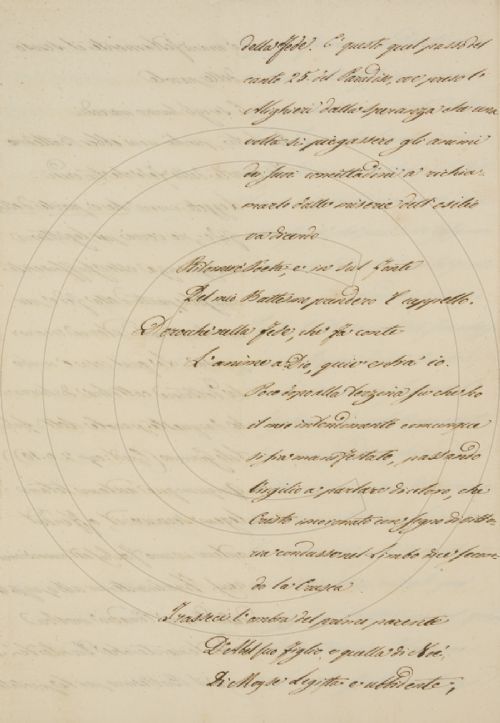 della fede. È questo quel passo del
canto 25. del Paradiso, ove preso l'
Alighieri dalla speranza che una
volta si piegassero gli animi
de suoi concittadini a richia-
marlo dalle miserie dell'esilio
va dicendo
Ritornerò Poeta, e in sul fonte
Del mio Battesmo prenderò 'l cappello.
Perocchè nella fede, che fa conte
L'anime a Dio, quivi entra' io.
Poco dopo alla terzina su che ho
il mio intendimento comunque
si sia manifestato, passando
Virgilio a parlare di coloro, che
Cristo incoronato con segno di vitto-
ria condusse nel Limbo dice secon-
do la Crusca
Trasseci l'ombra del primo parente
D'Abel suo figlio, e quella di Noè,
Di Moysè legista e ubbidente;